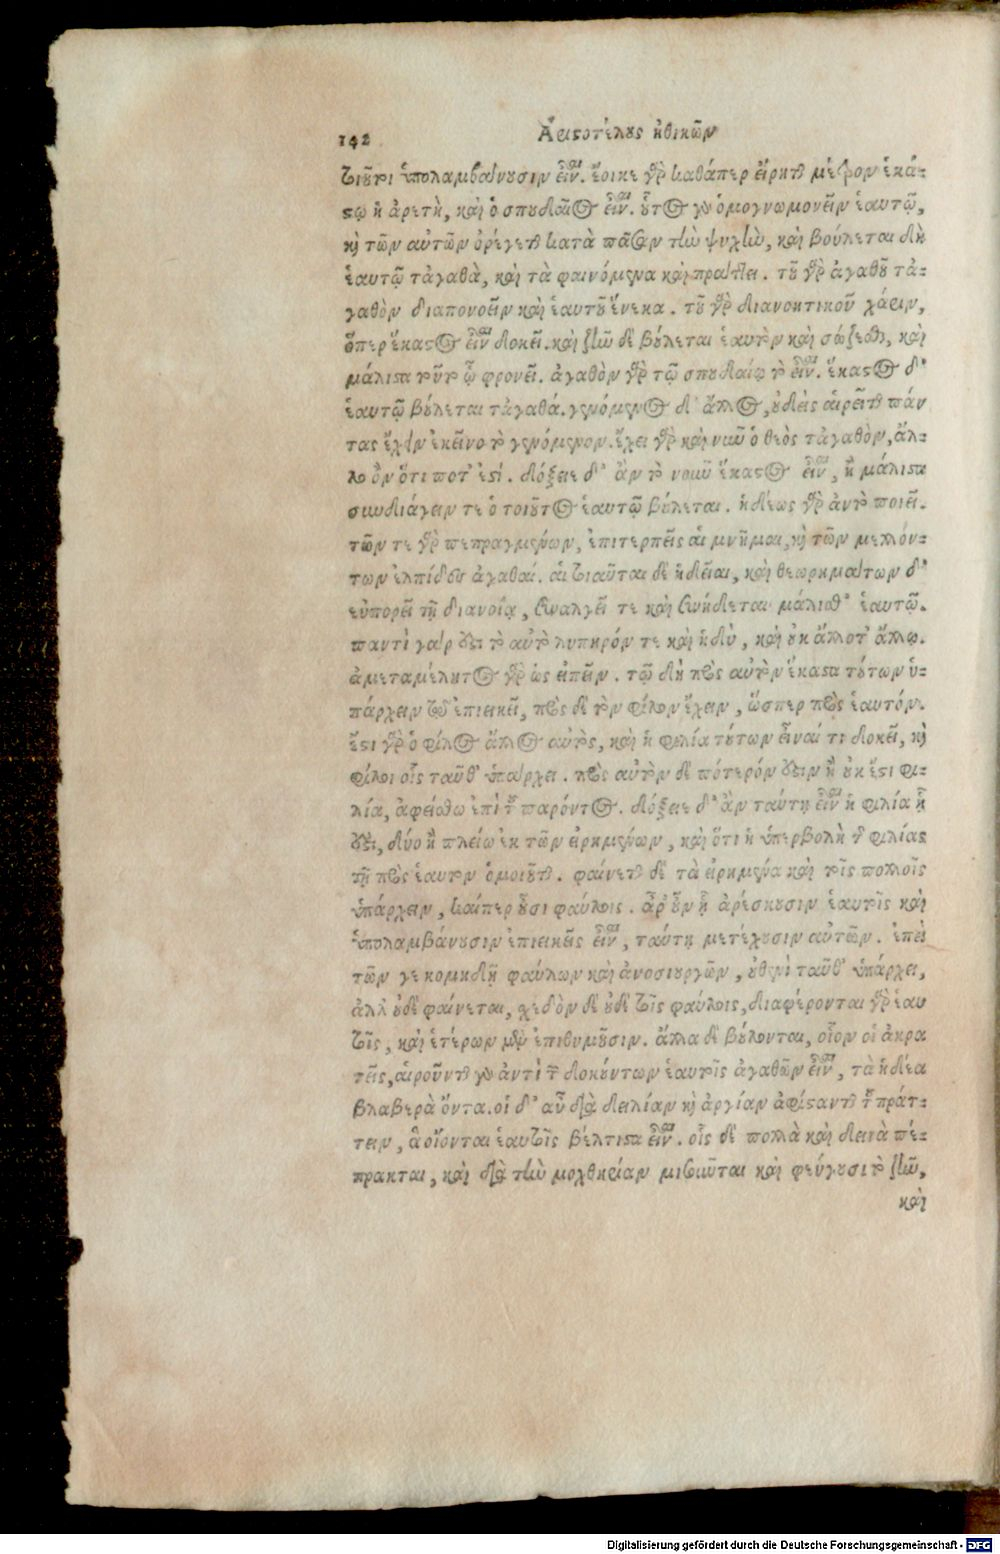 142 Ἀριστοτέλους ἠθικῶν
τοιοῦτοι ὑπολαμβάνουσιν εἶναι. ἔοικε γὰρ καθάπερ εἴρηται μέτρον ἑκά-
στῳ ἡ ἀρετὴ, καὶ ὁ σπουδαῖος εἶναι. οὗτος γὰρ ὁμογνωμονεῖν ἑαυτῷ,
καὶ τῶν αὐτῶν ὀρέγεται κατὰ πᾶσαν τὴν ψυχὴν, καὶ βούλεται δὴ
ἑαυτῷ τἀγαθὰ, καὶ τὰ φαινόμενα καὶ πράττει. τοῦ γὰρ ἀγαθοῦ τἀ-
γαθὸν διαπονοεῖν καὶ ἑαυτοῦ ἕνεκα. τοῦ γὰρ διανοητικοῦ χάριν,
ὅπερ ἕκαστος εἶναι δοκεῖ. καὶ ζῆν δὲ βούλεται ἑαυτὸν καὶ σώζεσθαι, καὶ
μάλιστα τοῦτο ᾧ φρονεῖ. ἀγαθὸν γὰρ τῷ σπουδαίῳ τὸ εἶναι. ἕκαστος δ’
ἑαυτῷ βούλεται τἀγαθά. γενόμενος δ’ ἄλλος, οὐδεὶς αἱρεῖται πάν
τας ἔχειν ἐκεῖνο τὸ γενόμενον. ἔχει γὰρ καὶ νῦν ὁ θεὸς τἀγαθὸν, ἀλ-
λο ὂν ὅτι ποτ’ ἐστί. δόξειε δ’ ἂν τὸ νοοῦν ἕκαστος εἶναι, ἢ μάλιστα
συνδιάγειν τε ὁ τοιοῦτος ἑαυτῷ βούλεται. ἡδέως γὰρ αὐτὸ ποιεῖ.
τῶν τε γὰρ πεπραγμένων, ἐπιτερπεῖς αἱ μνῆμαι, καὶ τῶν μελλόν-
των ἐλπίδες ἀγαθαί. αἱ τοιαῦται δὲ ἡδεῖαι, καὶ θεωρημάτων δ’
εὐπορεῖ τῇ διανοίᾳ, συναλγεῖ τε καὶ συνήδεται μάλισθ’ ἑαυτῷ.
παντὶ γάρ ἐστι τὸ αὐτὸ λυπηρόν τε καὶ ἡδὺ, καὶ οὐκ ἄλλοτ’ ἄλλο.
ἀμεταμέλητος γὰρ ὡς εἰπεῖν. τῷ δὴ πρὸς αὐτὸν ἕκαστα τούτων ὑ-
πάρχειν τῷ ἐπιεικεῖ, πρὸς δὲ τὸν φίλον ἔχειν, ὥσπερ πρὸς ἑαυτόν.
ἔστι γὰρ ὁ φίλος ἄλλος αὐτὸς, καὶ ἡ φιλία τούτων εἶναί τι δοκεῖ, καὶ
φίλοι οἷς ταῦθ’ ὑπάρχει. πρὸς αὐτὸν δὲ πότερόν ἐστιν ἢ οὐκ ἔστι φι-
λία, ἀφείσθω ἐπὶ τοῦ παρόντος. δόξειε δ’ ἂν ταύτῃ εἶναι ἡ φιλία ᾗ
ἐστι, δύο ἢ πλείω ἐκ τῶν εἰρημένων, καὶ ὅτι ἡ ὑπερβολὴ τῆς φιλίας
τῇ πρὸς ἑαυτὸν ὁμοιοῦται. φαίνεται δὲ τὰ εἰρημένα καὶ τοῖς πολλοῖς
ὑπάρχειν, καίπερ οὖσι φαύλοις. ἆρ’ οὖν ᾗ ἀρέσκουσιν ἑαυτοῖς καὶ
ὑπολαμβάνουσιν ἐπιεικεῖς εἶναι, ταύτῃ μετέχουσιν αὐτῶν. ἐπεὶ
τῶν γε κομιδῇ φαύλων καὶ ἀνοσιουργῶν, οὐθενὶ ταῦθ’ ὑπάρχει,
ἀλλ’ οὐδὲ φαίνεται, σχεδὸν δὲ οὐδὲ τοῖς φαύλοις, διαφέρονται γὰρ ἑαυ
τοῖς, καὶ ἑτέρων μὲν ἐπιθυμοῦσιν. ἄλλα δὲ βούλονται, οἷον οἱ ἀκρα
τεῖς, αἱροῦνται γὰρ ἀντὶ τῶν δοκούντων ἑαυτοῖς ἀγαθῶν εἶναι, τὰ ἡδέα
βλαβερὰ ὄντα. οἱ δ’ αὖ διὰ δειλίαν καὶ ἀργίαν ἀφίστανται τοῦ πράτ-
τειν, ἃ οἴονται ἑαυτοῖς βέλτιστα εἶναι. οἷς δὲ πολλὰ καὶ δεινὰ πέ-
πρακται, καὶ διὰ τὴν μοχθηρίαν μισοῦνται καὶ φεύγουσι τὸ ζῆν,
καὶ
Digitalisierung gefördert durch die Deutsche Forschungsgemeinschaft - DFG